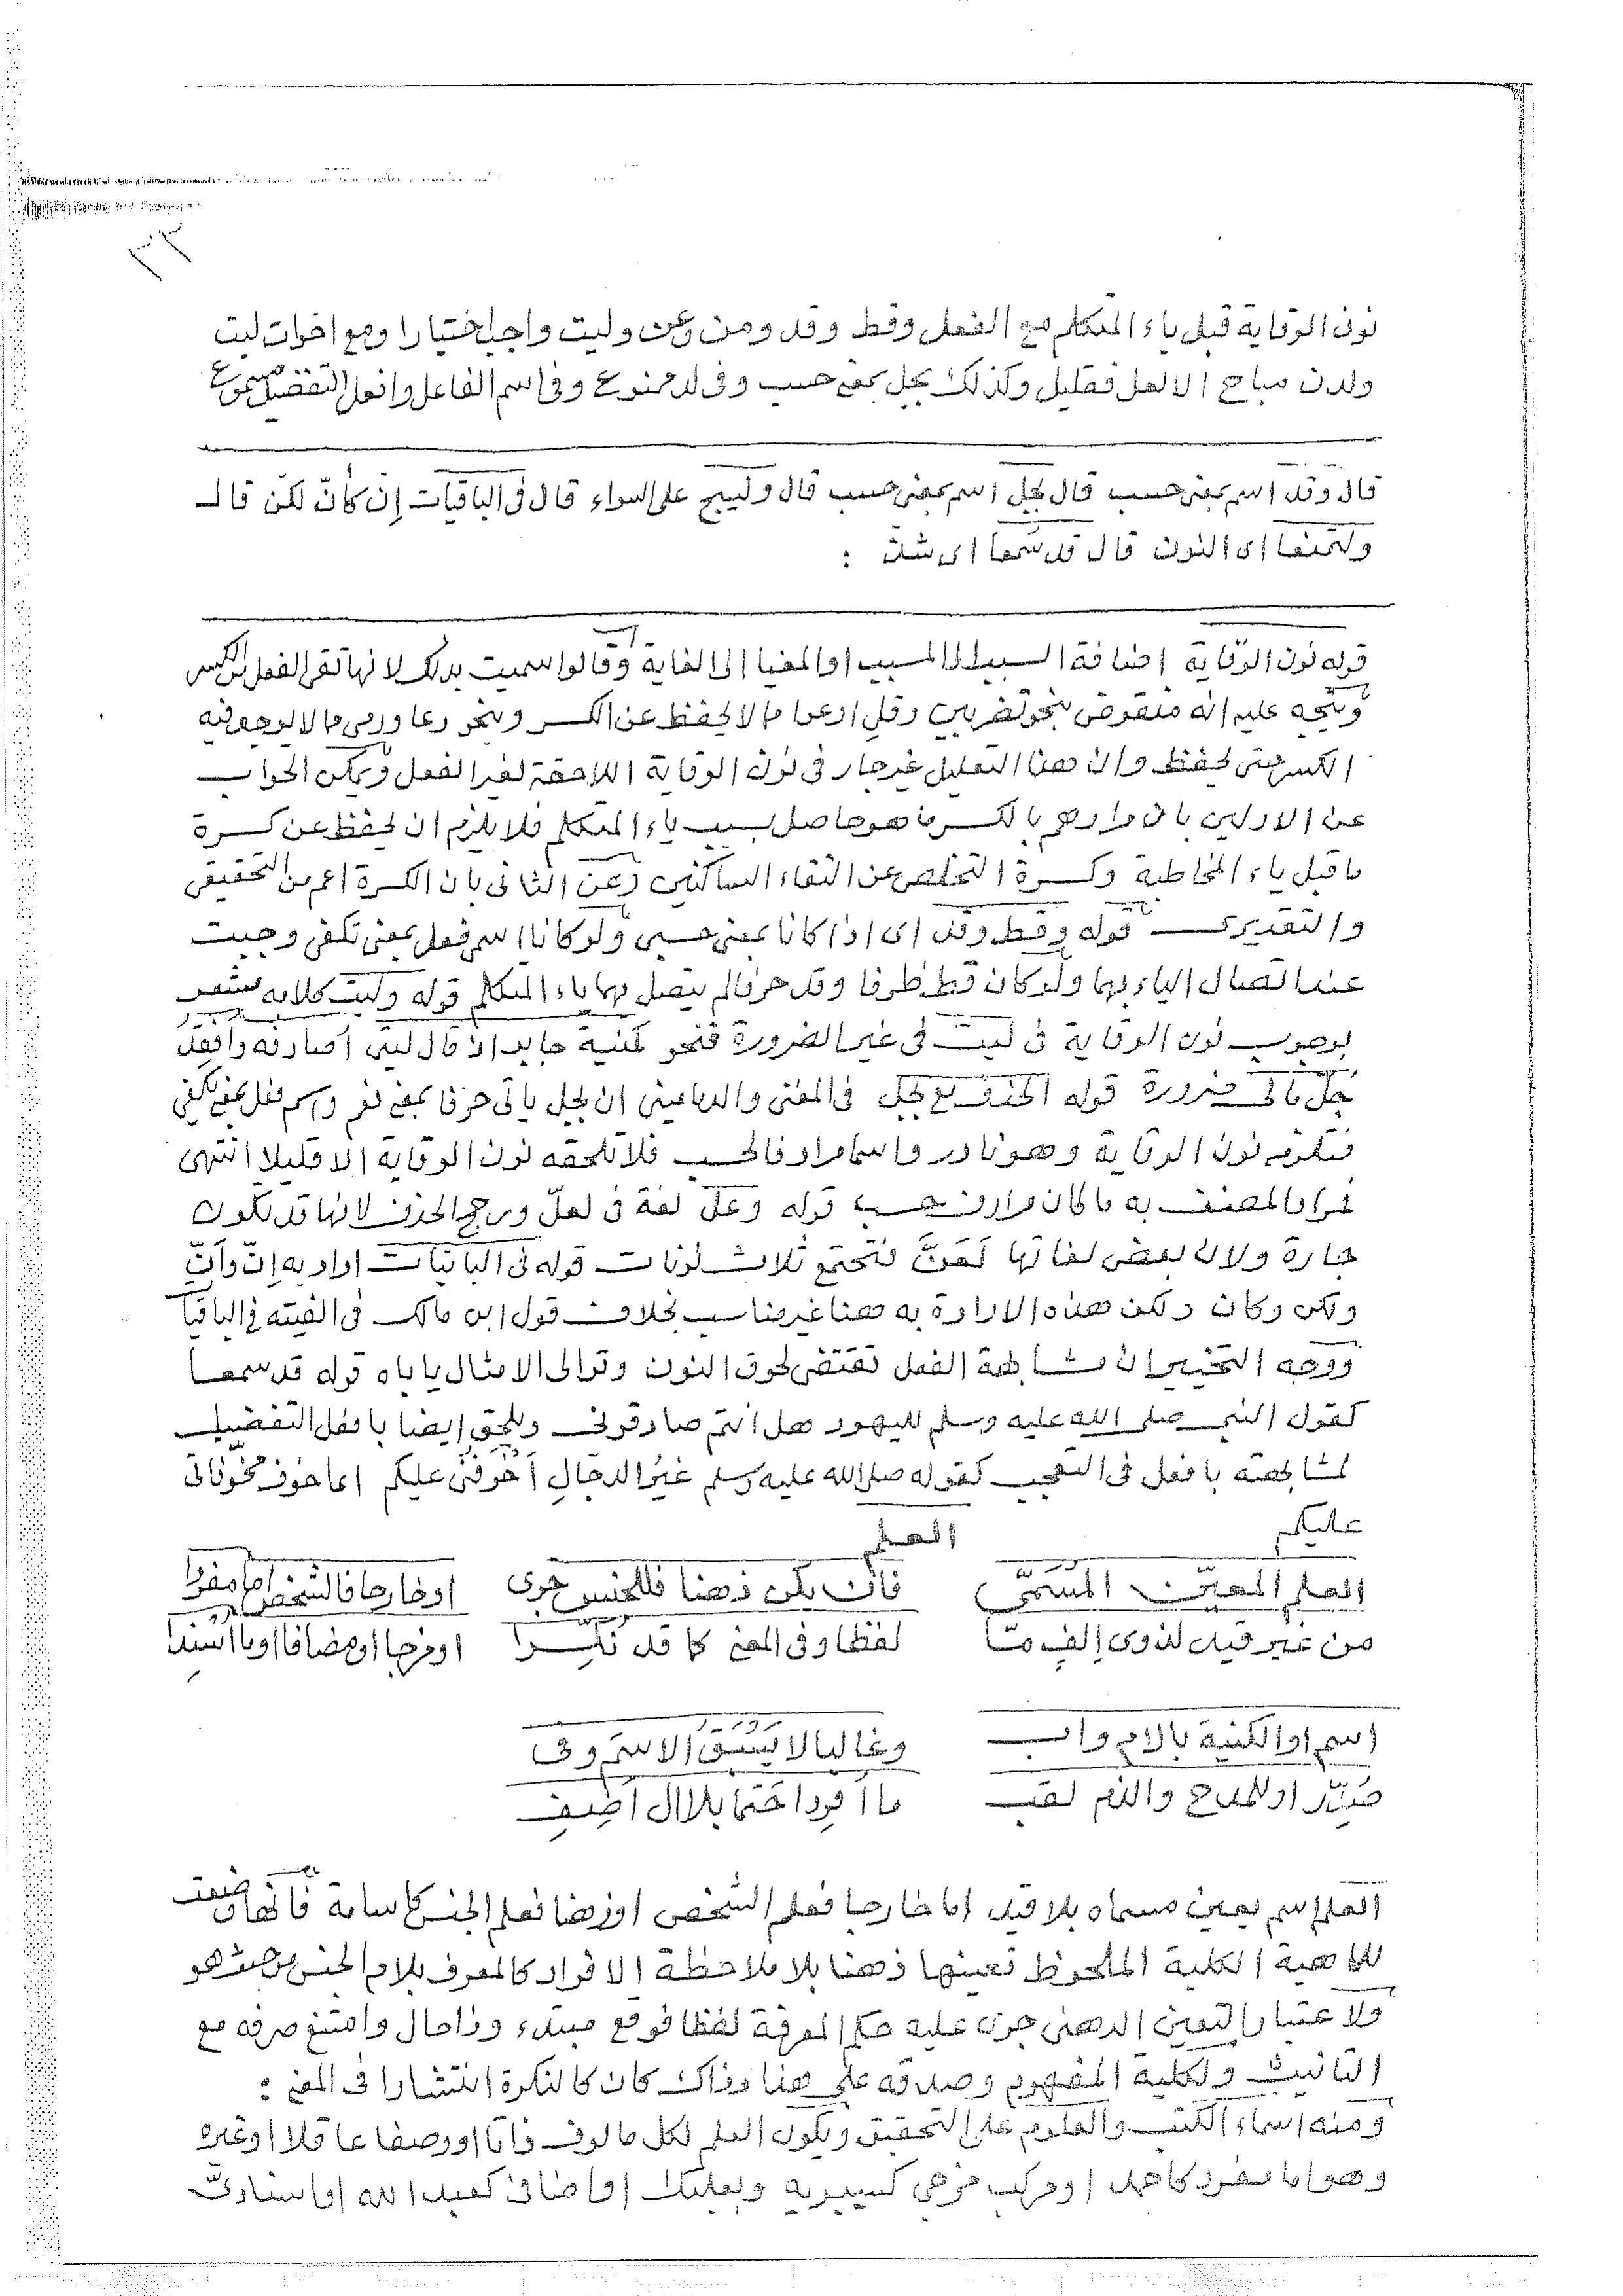 ٣٣
نون الوقاية قبل ياء المتكلم مع الفعل وقط وقد ومن وعن وليت واجب اختيارا ومع اخوات ليت
ولدن مباح الا لعل فقليل وكذلك بجل بمعنى حسب وفى لد ممنوع وفى اسم الفاعل وافعل التفضيل مسموع
قال وقد اسم بمعنى حسب قال بجل اسم بمعنى حسب قال وليبح على السواء قال فى الباقيات إن كأنّ لكنّ قال
ولتمنعا اى النون قال قد سُمعا اى شذ :
قوله نون الوقاية اضافة السبب الى المسبب او المغيا الى الغاية وقالوا سميت بذلك لانها تقى الفعل من الكسر
ويتجه عليه انه منقوض بنحو تضربين وقل ادعوا مما لا يحفظ عن الكسر وبنحو دعا ورمى مما لا يوجد فيه
الكسر حتى يحفظ وان هذا التعليل غير جار فى نون الوقاية اللاحقة لغير الفعل ويمكن الجواب
عن الاولين بان مرادهم بالكسر ما هو حاصل بسبب ياء المتكلم فلا يلزم ان يحفظ عن كسرة
ما قبل ياء المخاطبة وكسرة التخلص عن التقاء الساكنين وعن الثانى بان الكسرة اعم من التحقيقى
والتقديرى قوله وقط وقد اى اذا كانا بمعنى حسبى ولو كانا اسمى فعل بمعنى تكفى وجبت
عند اتصال الياء بهما ولو كان قط ظرفا وقد حرفا لم يتصل بهما ياء المتكلم قوله وليت كلامه مشعر
بوجوب نون الوقاية فى ليت فى غير الضرورة فنحو كمنية جابر اذ قال ليتى اصادفه وافقد
جُلّ مالى ضرورة قوله الحذف مع بجل فى المغنى والدمامينى ان بجل ياتى حرفا بمعنى نعم واسم فعل بمعنى يكفى
فتلزمه نون الوقاية وهو نادر واسما مرادفا لحسب فلا تلحقه نون الوقاية الا قليلا انتهى
فمراد المصنف به ما كان مرادف حسب قوله وعلّ لغة فى لعلّ ورجح الحذف لانها قد تكون
جارة ولان بعض لغاتها لَعَنَّ فتجتمع ثلاث نونات قوله فى الباقيات اراد به إنّ وأنّ
ولكن وكان ولكن هذه الارادة به ههنا غير مناسب بخلاف قول ابن مالك فى الفيته فى الباقيا
ووجه التخيير ان مشابهة الفعل تقتضى لحوق النون وتوالى الامثال ياباه قوله قد سمعا
كقول النبى صلى الله عليه وسلم لليهود هل انتم صادقونى ويلحق ايضا بافعل التفضيل
لمشابهته بافعل فى التعجب كقوله صلى الله عليه وسلم غيرُ الدجّالِ أخوفنى عليكم اى اخوف مخوّفاتى
عليكم
العلم
العلم المعيّن المسمّى فان يكن ذهنا فللجنس جرى او خارجا فالشخص اما مفردا
من غير قيد لذوى إلفٍ مّا لفظا وفى المعنى كما قد نُكّرا او مزجا او مضافا او ما اُسْنِدا
اسم او الكنية بالام واب وغالبا لا يَسْبَق الاسمَ وفى
صُدّر او للمدح والذم لقب ما اُفرِدا حَتما بلا ال اَضِفِ
العلم اسم يعين مسماه بلا قيد اما خارجا فعلم الشخص او ذهنا فعلم الجنس كاسامة فانها وضعت
للماهية الكلية الملحوظ تعينها ذهنا بلا ملاحظة الافراد كالمعرف بلام الجنس من حيث هو
ولاعتبار التعين الذهنى جرى عليه حكم المعرفة لفظا فوقع مبتدء وذا حال وامتنع صرفه مع
التانيث ولكلية المفهوم وصدقه على هذا وذاك كان كالنكرة انتشارا فى المعنى :
ومنه اسماء الكتب والعلوم على التحقيق ويكون العلم لكل مالوف ذاتا او وصفا عاقلا او غيره
وهو اما مفرد كاحمد او مركب مزجى كسيبويه وبعلبك او اضافى كعبد الله او اسنادىّ